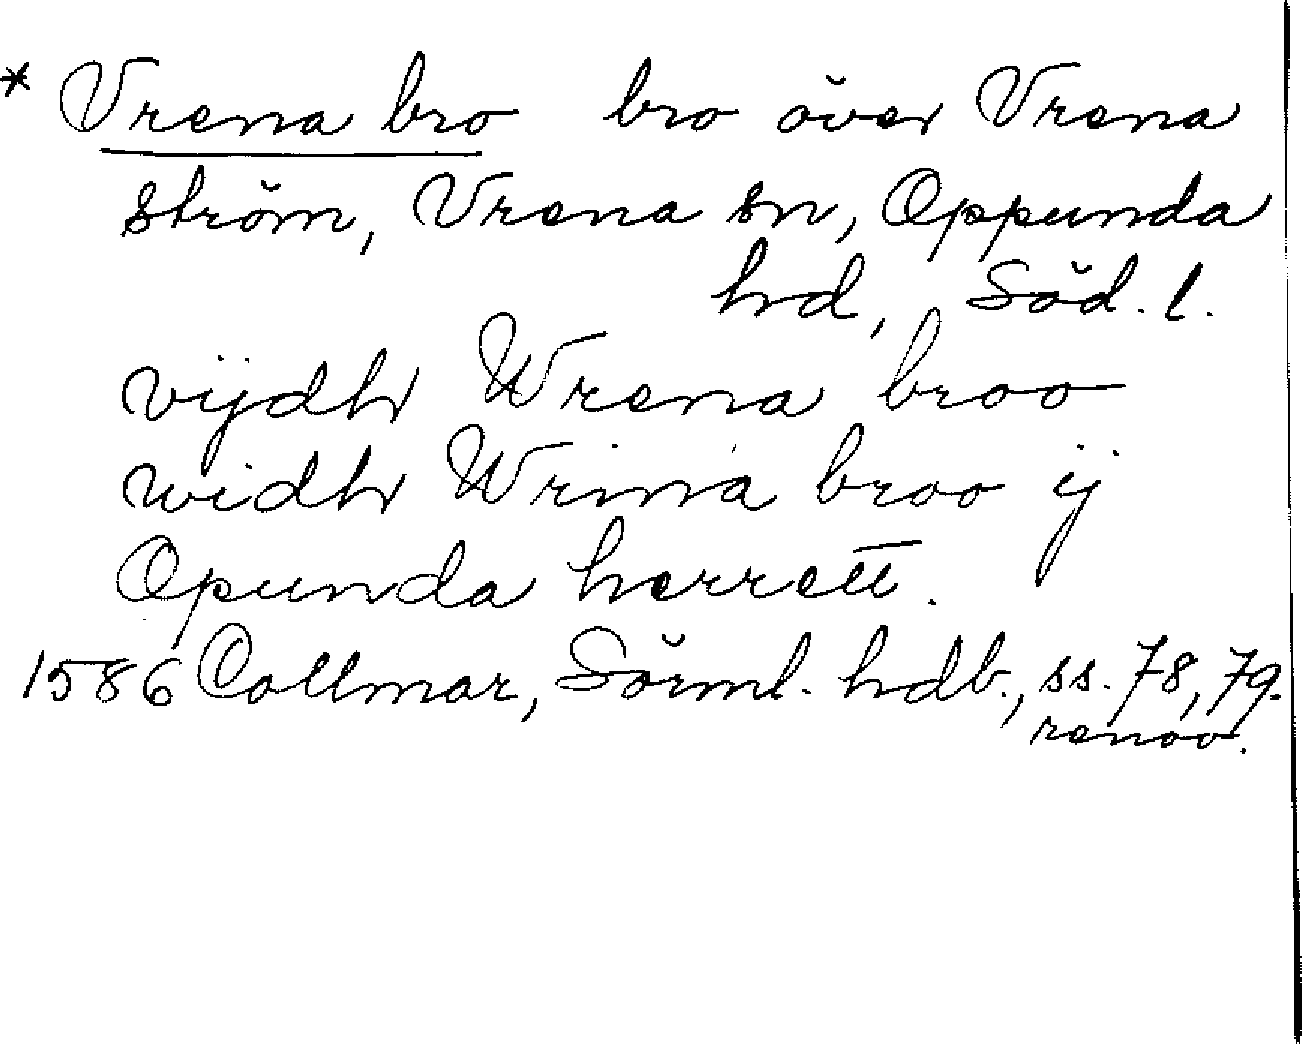 * Vrena bro bro över Vrena
ström, Vrena sn, Oppunda
hd, Söd. l.
vijdh Wrena broo
widh Wrina broo ij
Opunda herrett.
1586 Collmar, Sörml. hdb., ss. 78, 79.
renov.